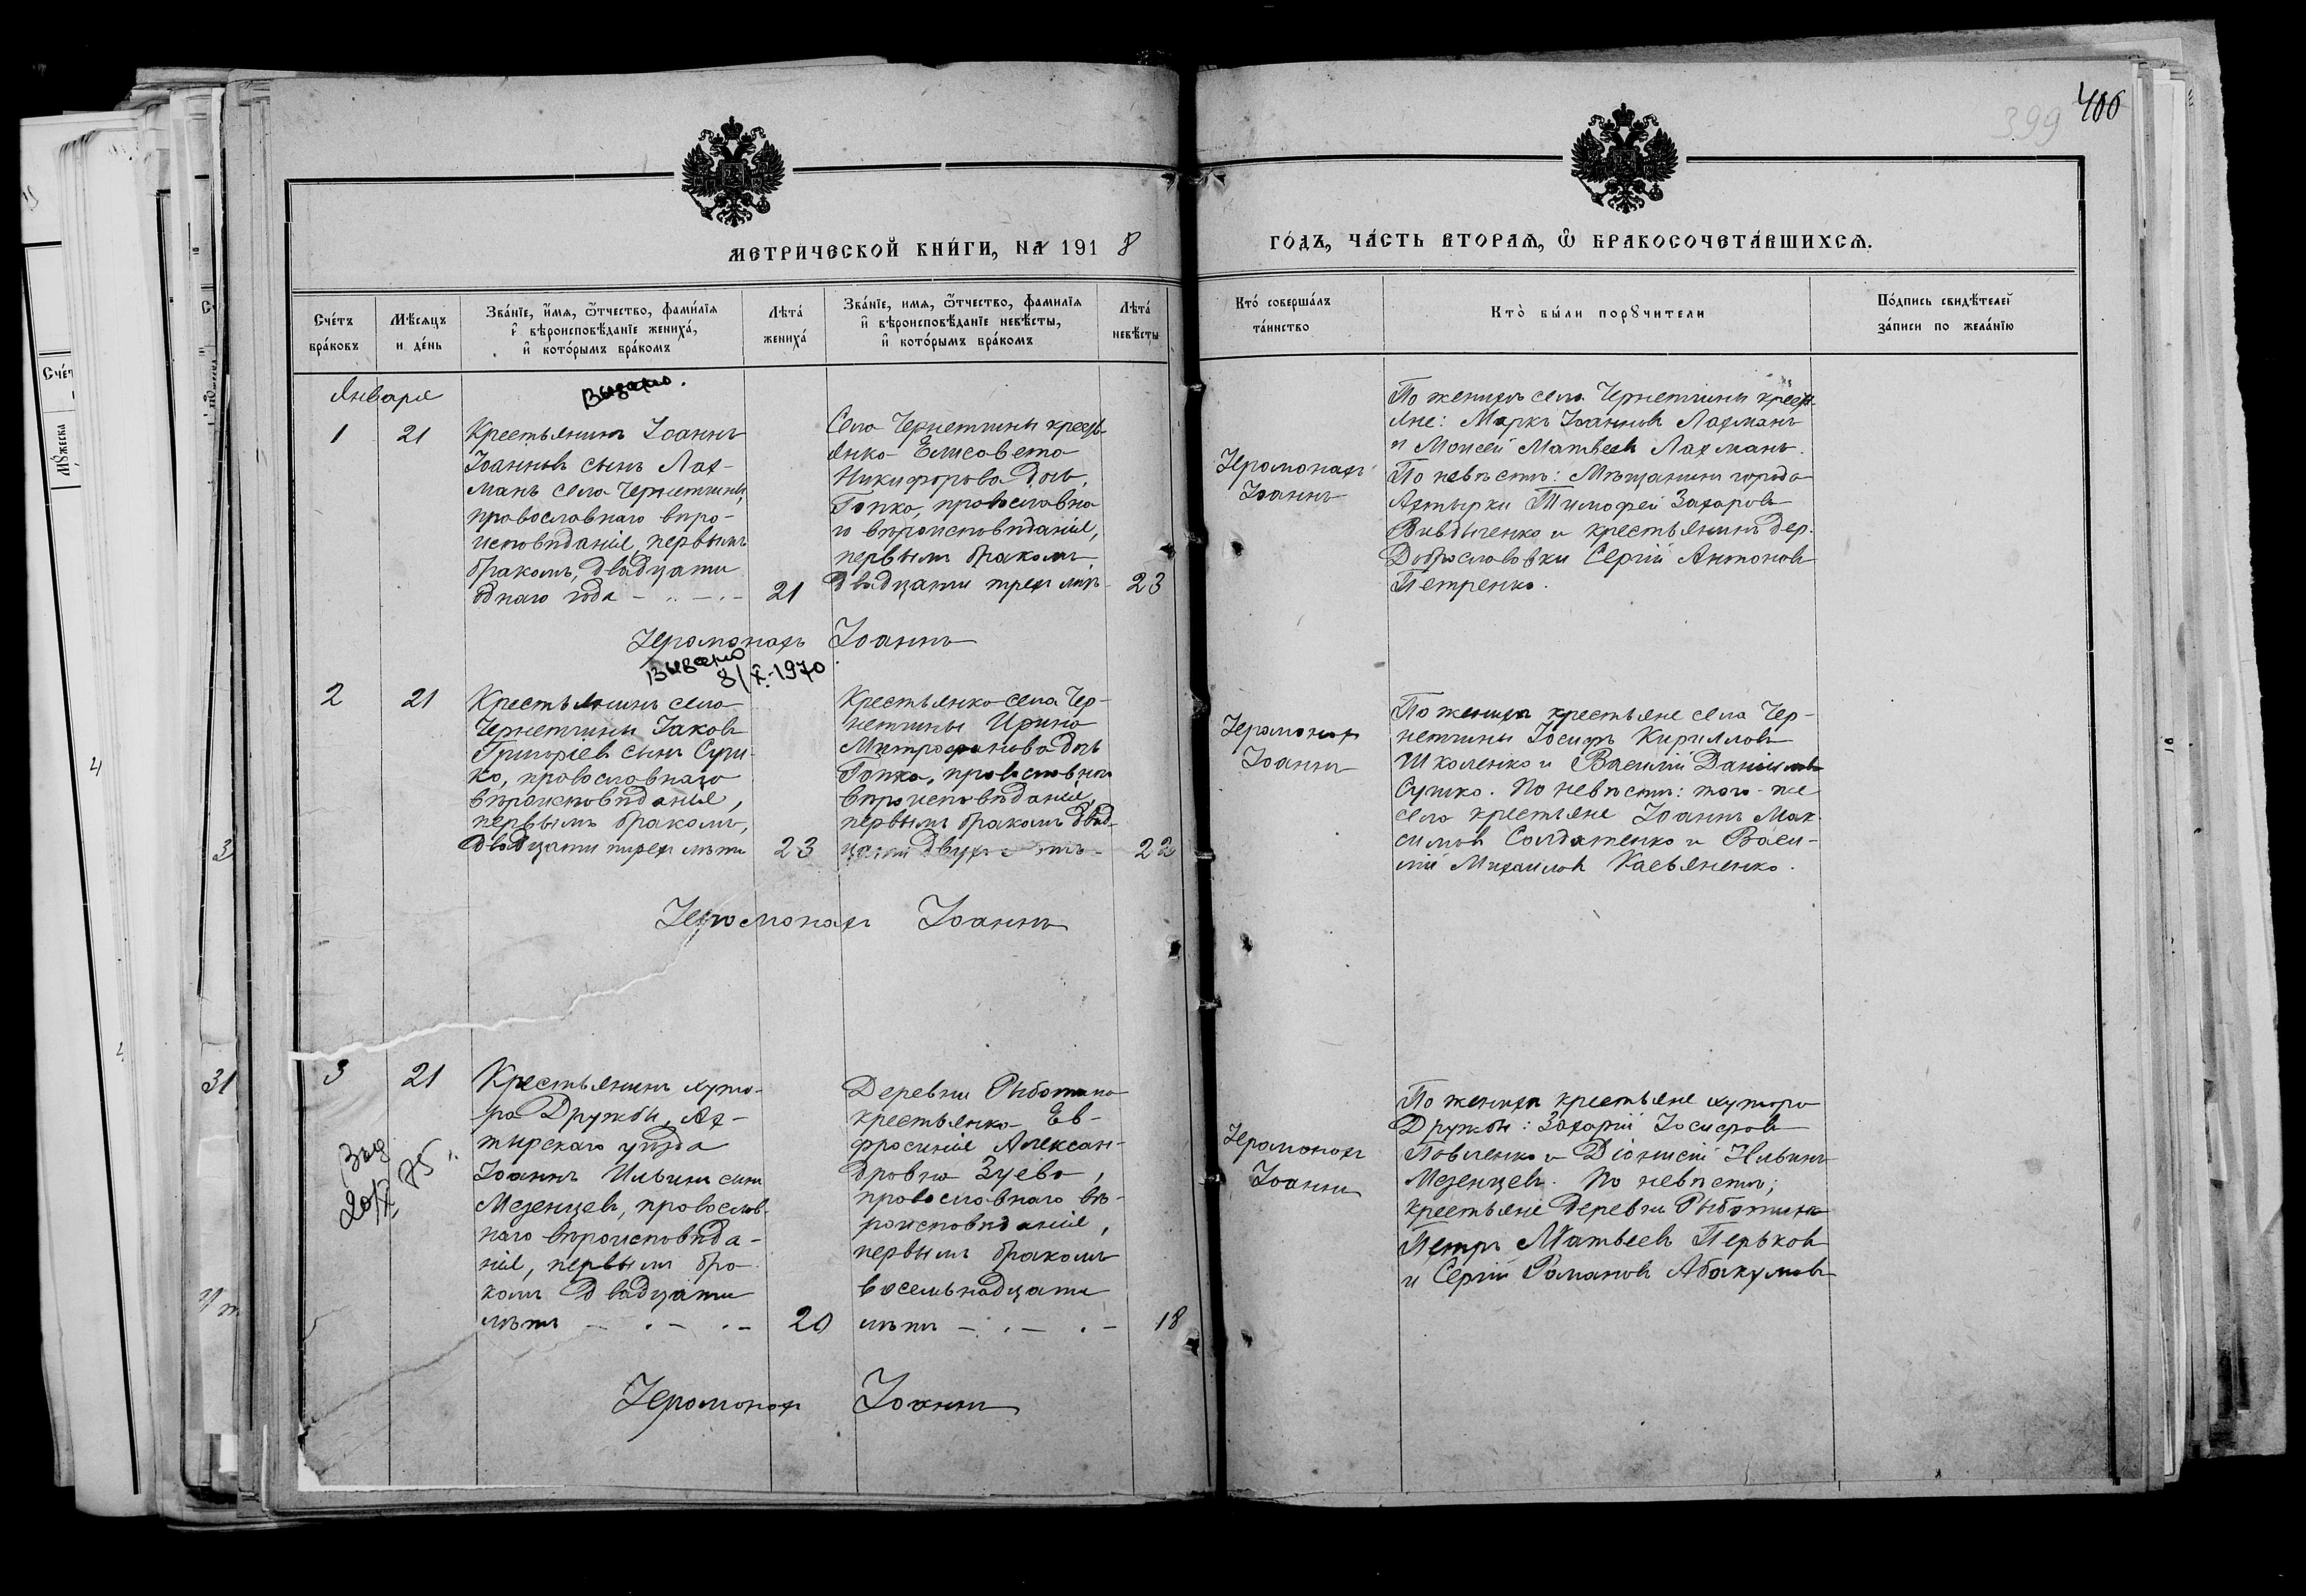 399 400
МЕТРИЧЕСКОЙ КНИГИ, НА 1918
ГОДЪ, ЧАСТЬ ВТОРАЯ, Ѡ БРАКОСОЧЕТАВШИХСЯ.
Счетъ браковъ
Мѣсяцъ и день
Званіе, имя, ѿтчество, фамилія
и вѣроисповѣданіе жениха,
и которымъ бракомъ
Лѣта жениха
Званіе, имя, ѿтчество, фамилія
и вѣроисповѣданіе невѣсты,
и которымъ бракомъ
Лѣта невѣсты
Кто совершалъ
таинство
Кто были порꙋчители
Подпись свидѣтелей
записи по желанію
Января
Выдано.
1
21
Крестьянинъ Іоаннъ
Іоанновъ сынъ Лах-
манъ села Чернетчины,
православнаго вѣро-
исповѣданія, первымъ
бракомъ, двадцати
однаго года
21
Села Чернетчины кресть-
янка Елисавета
Никифорова дочь
Гопка, православна-
го вѣроисповѣданія,
первымъ бракомъ,
двадцати трехъ лѣтъ
23
Іеромонахъ
Іоаннъ
По женихѣ села Чернетчины кресть-
яне: Маркъ Іоанновъ Лахманъ
и Моисей Матвеевъ Лахманъ.
По невѣстѣ: Мѣщанинъ города
Ахтырки Тимофей Захаровъ
Вивдыченко и крестьянинъ дер.
Доброславовки Сергій Антоновъ
Петренко.
Іеромонахъ Іоаннъ
Выдано
8/X-1970
2
21
Крестьянинъ села
Чернетчины Іаковъ
Григоріевъ сынъ Суш-
ко, православнаго
вѣроисповѣданія,
первымъ бракомъ,
двадцати трехъ лѣтъ
23
Крестьянка села Чер-
нетчины Ирина
Митрофанова дочь
Гопка, православнаго
вѣроисповѣданія,
первымъ бракомъ двад-
цати двухъ лѣтъ
22
Іеромонахъ
Іоаннъ
По женихѣ крестьяне села Чер-
нетчины Іосифъ Кирилловъ
Школенко и Василій Даниловъ
Сушко. По невѣстѣ: того-же
села крестьяне Іоаннъ Мак-
симовъ Солдатенко и Васи-
лій Михаиловъ Касьяненко.
Іеромонахъ Іоаннъ
3
21
20/X 75
Крестьянинъ хуто-
ра Дружбы, Ах-
тырскаго уѣзда
Іоаннъ Ильинъ сынъ
Мезенцевъ, православ-
наго вѣроисповѣда-
нія, первымъ бра-
комъ двадцати
лѣтъ
20
Деревни Рыботина
крестьянка Ев-
фросинія Алексан-
дровна Зуева,
православнаго вѣ-
роисповѣданія,
первымъ бракомъ
восемьнадцати
лѣтъ
18
Іеромонахъ
Іоаннъ
По женихѣ крестьяне хутора
Дружбы: Захарій Іосифовъ
Павленко и Діонисій Ильинъ
Мезенцевъ. По невѣстѣ;
крестьяне деревни Рыботина
Петръ Матвеевъ Перьковъ
и Сергій Романовъ Абакумовъ
Іеромонахъ Іоаннъ